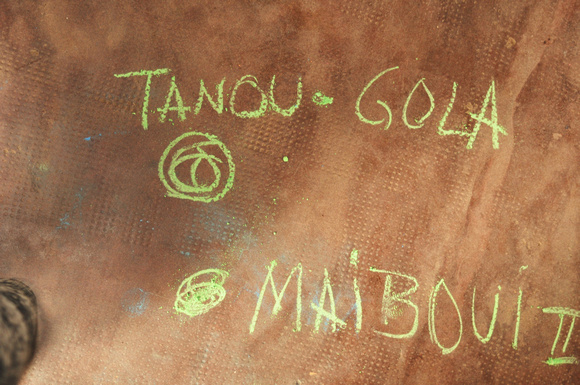 TANOU·GOLA
MAIBOUI II